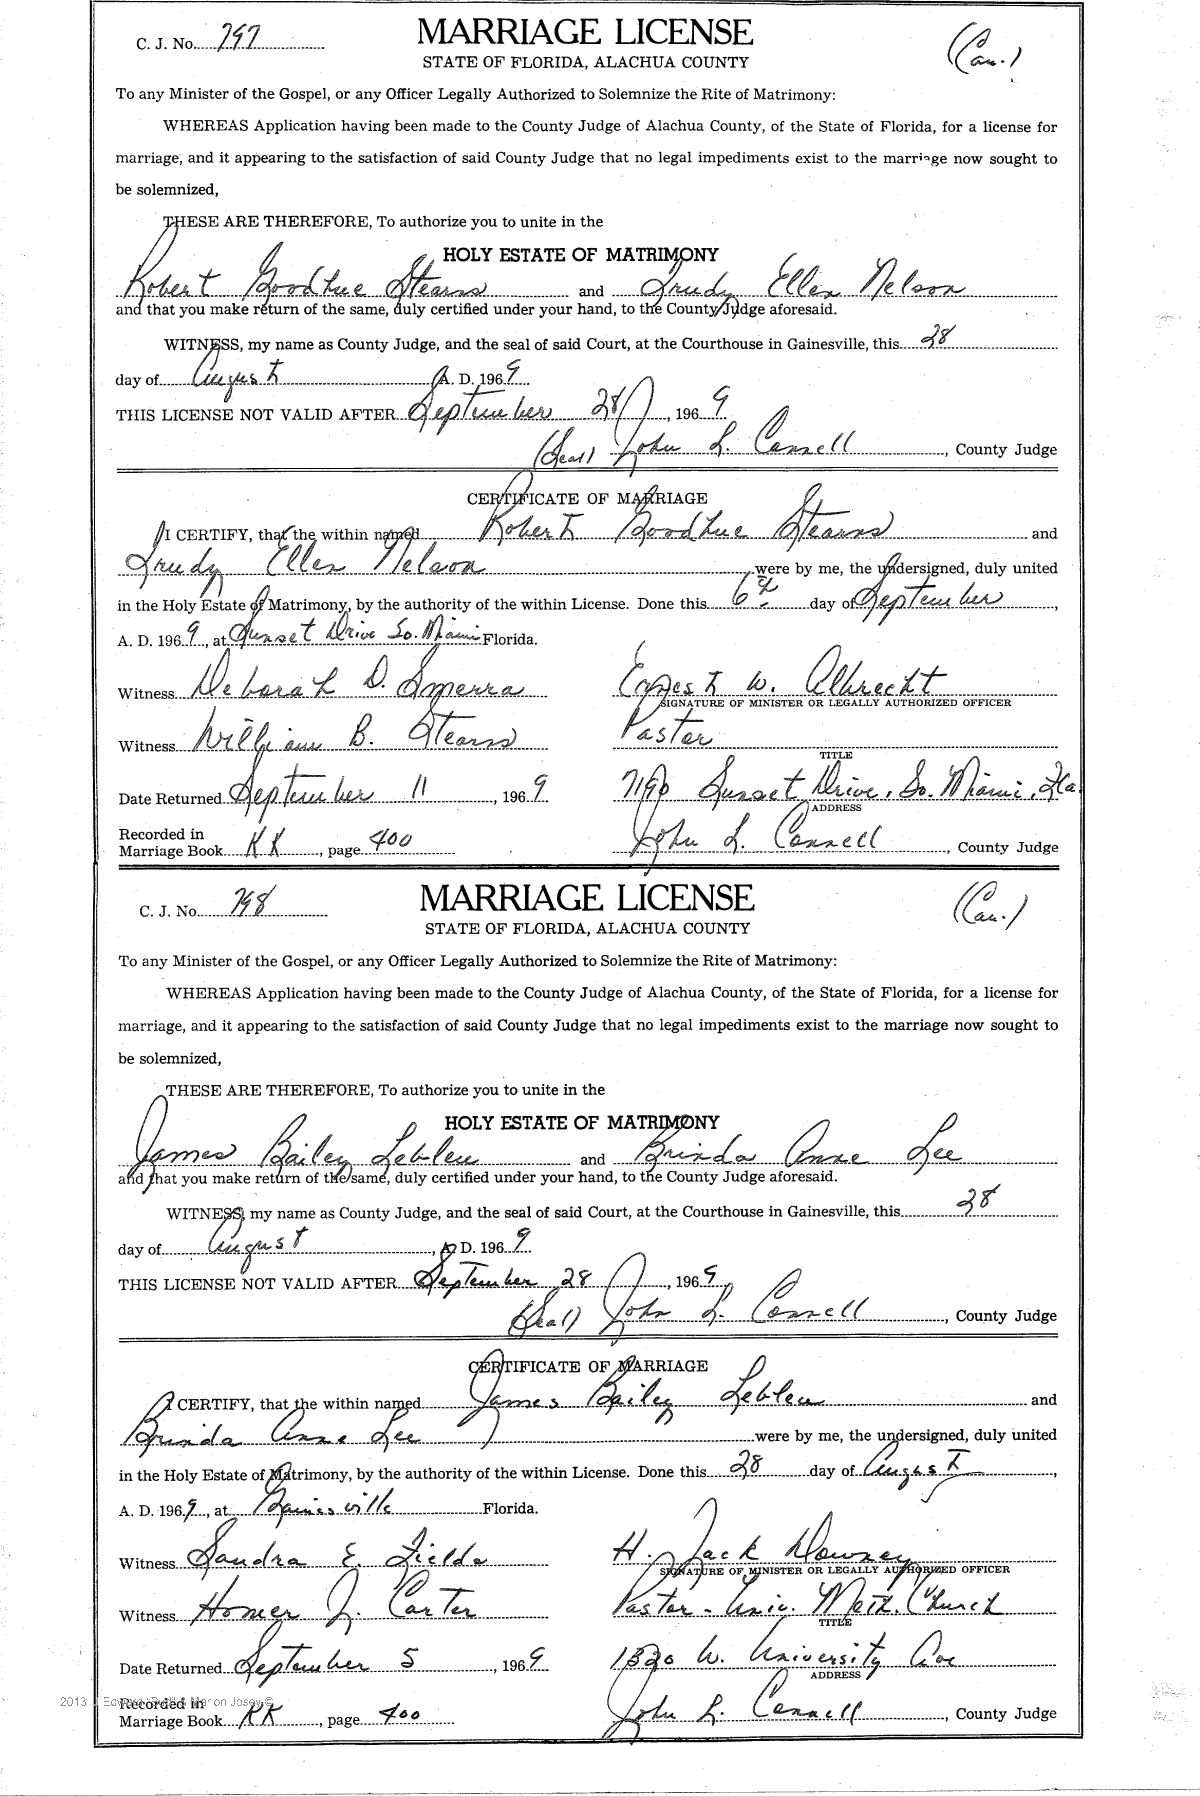 C. J. No. 797
MARRIAGE LICENSE
(Cau.)
STATE OF FLORIDA, ALACHUA COUNTY
To any Minister of the Gospel, or any Officer Legally Authorized to Solemnize the Rite of Matrimony:
WHEREAS Application having been made to the County Judge of Alachua County, of the State of Florida, for a license for
marriage, and it appearing to the satisfaction of said County Judge that no legal impediments exist to the marriage now sought to
be solemnized,
THESE ARE THEREFORE, To authorize you to unite in the
HOLY ESTATE OF MATRIMONY
Robert Goodhue Stearns and Trudy Ellen Nelson
and that you make return of the same, duly certified under your hand, to the County Judge aforesaid.
WITNESS, my name as County Judge, and the seal of said Court, at the Courthouse in Gainesville, this 28
day of August A. D. 1969
THIS LICENSE NOT VALID AFTER September 28, 1969
(Seal) John L. Connell, County Judge
CERTIFICATE OF MARRIAGE
I CERTIFY, that the within named Robert Goodhue Stearns and
Trudy Ellen Nelson were by me, the undersigned, duly united
in the Holy Estate of Matrimony, by the authority of the within License. Done this 6th day of September,
A. D. 1969, at Sunset Drive So. Miami Florida.
Witness Deborah D. Smerra Ernest W. Albrecht
SIGNATURE OF MINISTER OR LEGALLY AUTHORIZED OFFICER
Witness William B. Stearns Pastor
TITLE
Date Returned September 11, 1969 7190 Sunset Drive, So. Miami, Fla.
ADDRESS
Recorded in
Marriage Book KK, page 400 John L. Connell, County Judge
C. J. No. 798
MARRIAGE LICENSE
(Cau.)
STATE OF FLORIDA, ALACHUA COUNTY
To any Minister of the Gospel, or any Officer Legally Authorized to Solemnize the Rite of Matrimony:
WHEREAS Application having been made to the County Judge of Alachua County, of the State of Florida, for a license for
marriage, and it appearing to the satisfaction of said County Judge that no legal impediments exist to the marriage now sought to
be solemnized,
THESE ARE THEREFORE, To authorize you to unite in the
HOLY ESTATE OF MATRIMONY
James Bailey Lebleu and Brinda Anne Lee
and that you make return of the same, duly certified under your hand, to the County Judge aforesaid.
WITNESS, my name as County Judge, and the seal of said Court, at the Courthouse in Gainesville, this 28
day of August, A. D. 1969
THIS LICENSE NOT VALID AFTER September 28, 1969
(Seal) John L. Connell, County Judge
CERTIFICATE OF MARRIAGE
I CERTIFY, that the within named James Bailey Lebleu and
Brinda Anne Lee were by me, the undersigned, duly united
in the Holy Estate of Matrimony, by the authority of the within License. Done this 28 day of August,
A. D. 1969, at Gainesville Florida.
Witness Sandra E. Fields H. Jack Downey
SIGNATURE OF MINISTER OR LEGALLY AUTHORIZED OFFICER
Witness Homer J. Carter Pastor - Univ. Meth. Church
TITLE
Date Returned September 5, 1969 1320 W. University Ave
ADDRESS
2013 Recorded in
Marriage Book KK, page 400 John L. Connell, County Judge